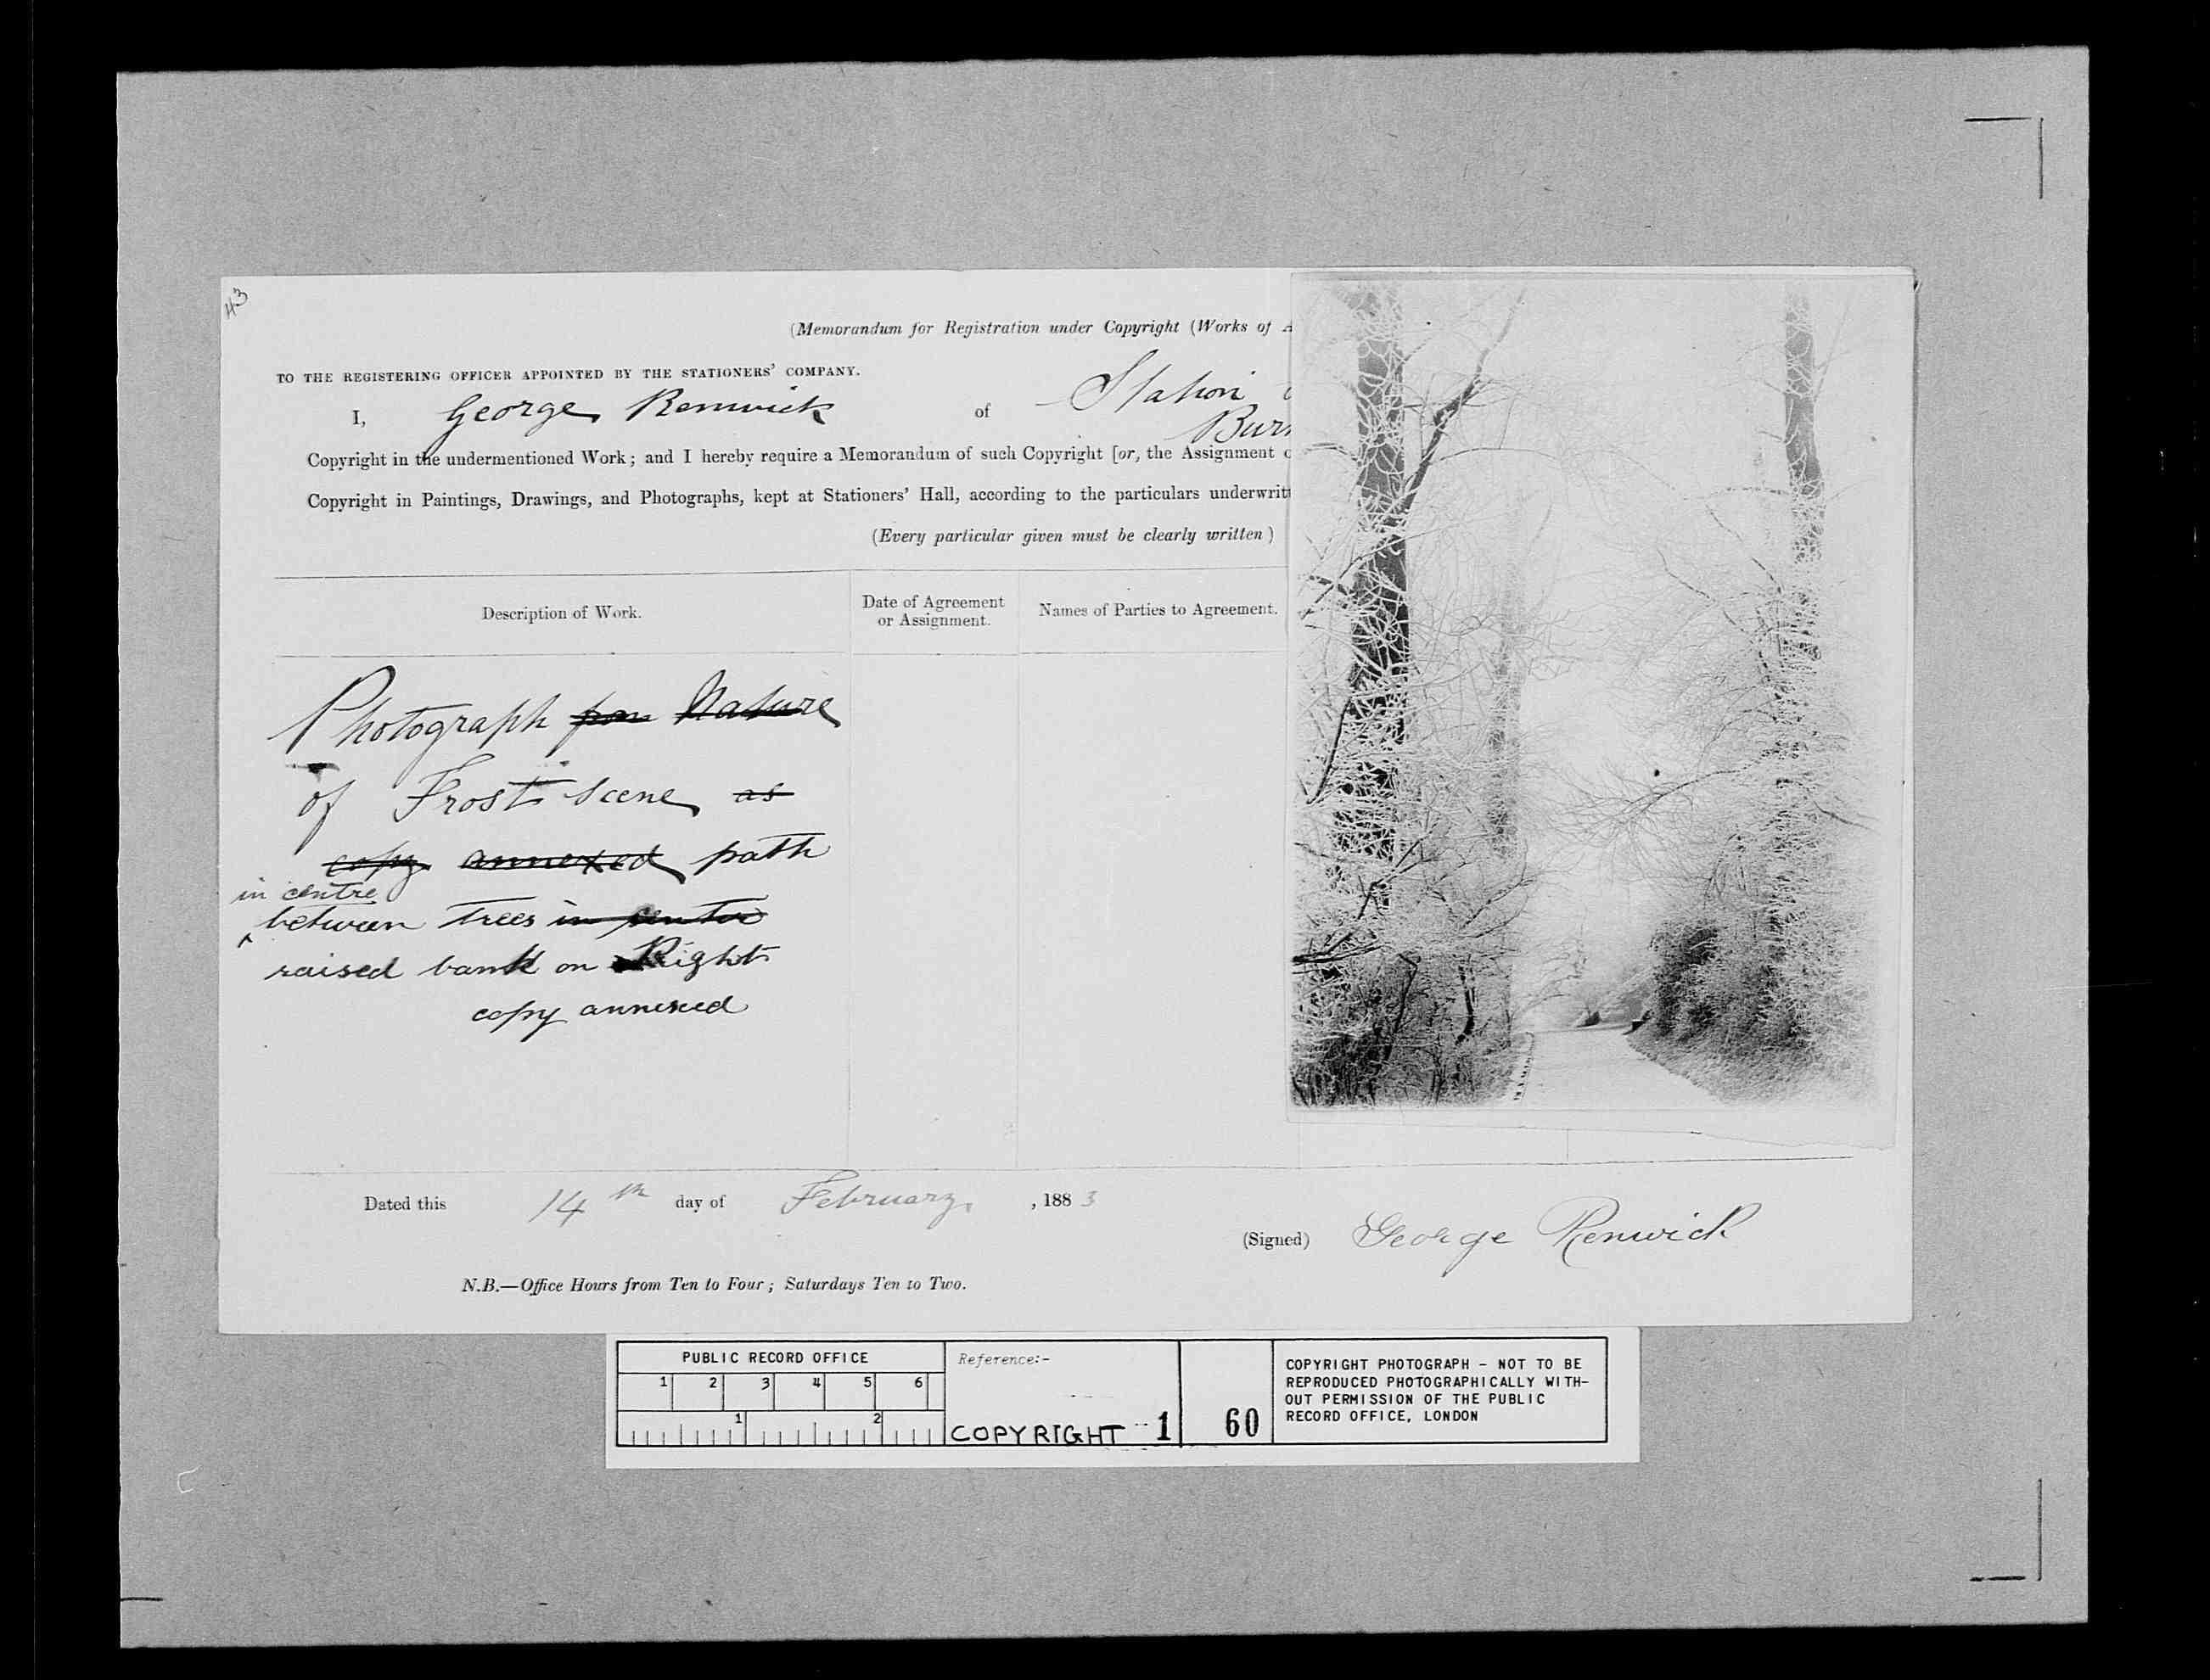 43
(Memorandum for Registration under Copyright (Works of A
TO THE REGISTERING OFFICER APPOINTED BY THE STATIONERS' COMPANY.
I, George Renwick of Station
Bur
Copyright in the undermentioned Work; and I hereby require a Memorandum of such Copyright [or, the Assignment o
Copyright in Paintings, Drawings, and Photographs, kept at Stationers' Hall, according to the particulars underwritt
(Every particular given must be clearly written)
Description of Work.
Date of Agreement
or Assignment.
Names of Parties to Agreement.
Photograph from Nature
of Frost Scene as
copy annexed path
in centre
between trees in centre
raised bank on Right
copy annexed
Dated this 14th day of February, 1883
(Signed) George Renwick
N.B.—Office Hours from Ten to Four; Saturdays Ten to Two.
PUBLIC RECORD OFFICE
1 2 3 4 5 6
1 2
Reference:-
COPYRIGHT 1
60
COPYRIGHT PHOTOGRAPH - NOT TO BE
REPRODUCED PHOTOGRAPHICALLY WITH-
OUT PERMISSION OF THE PUBLIC
RECORD OFFICE, LONDON